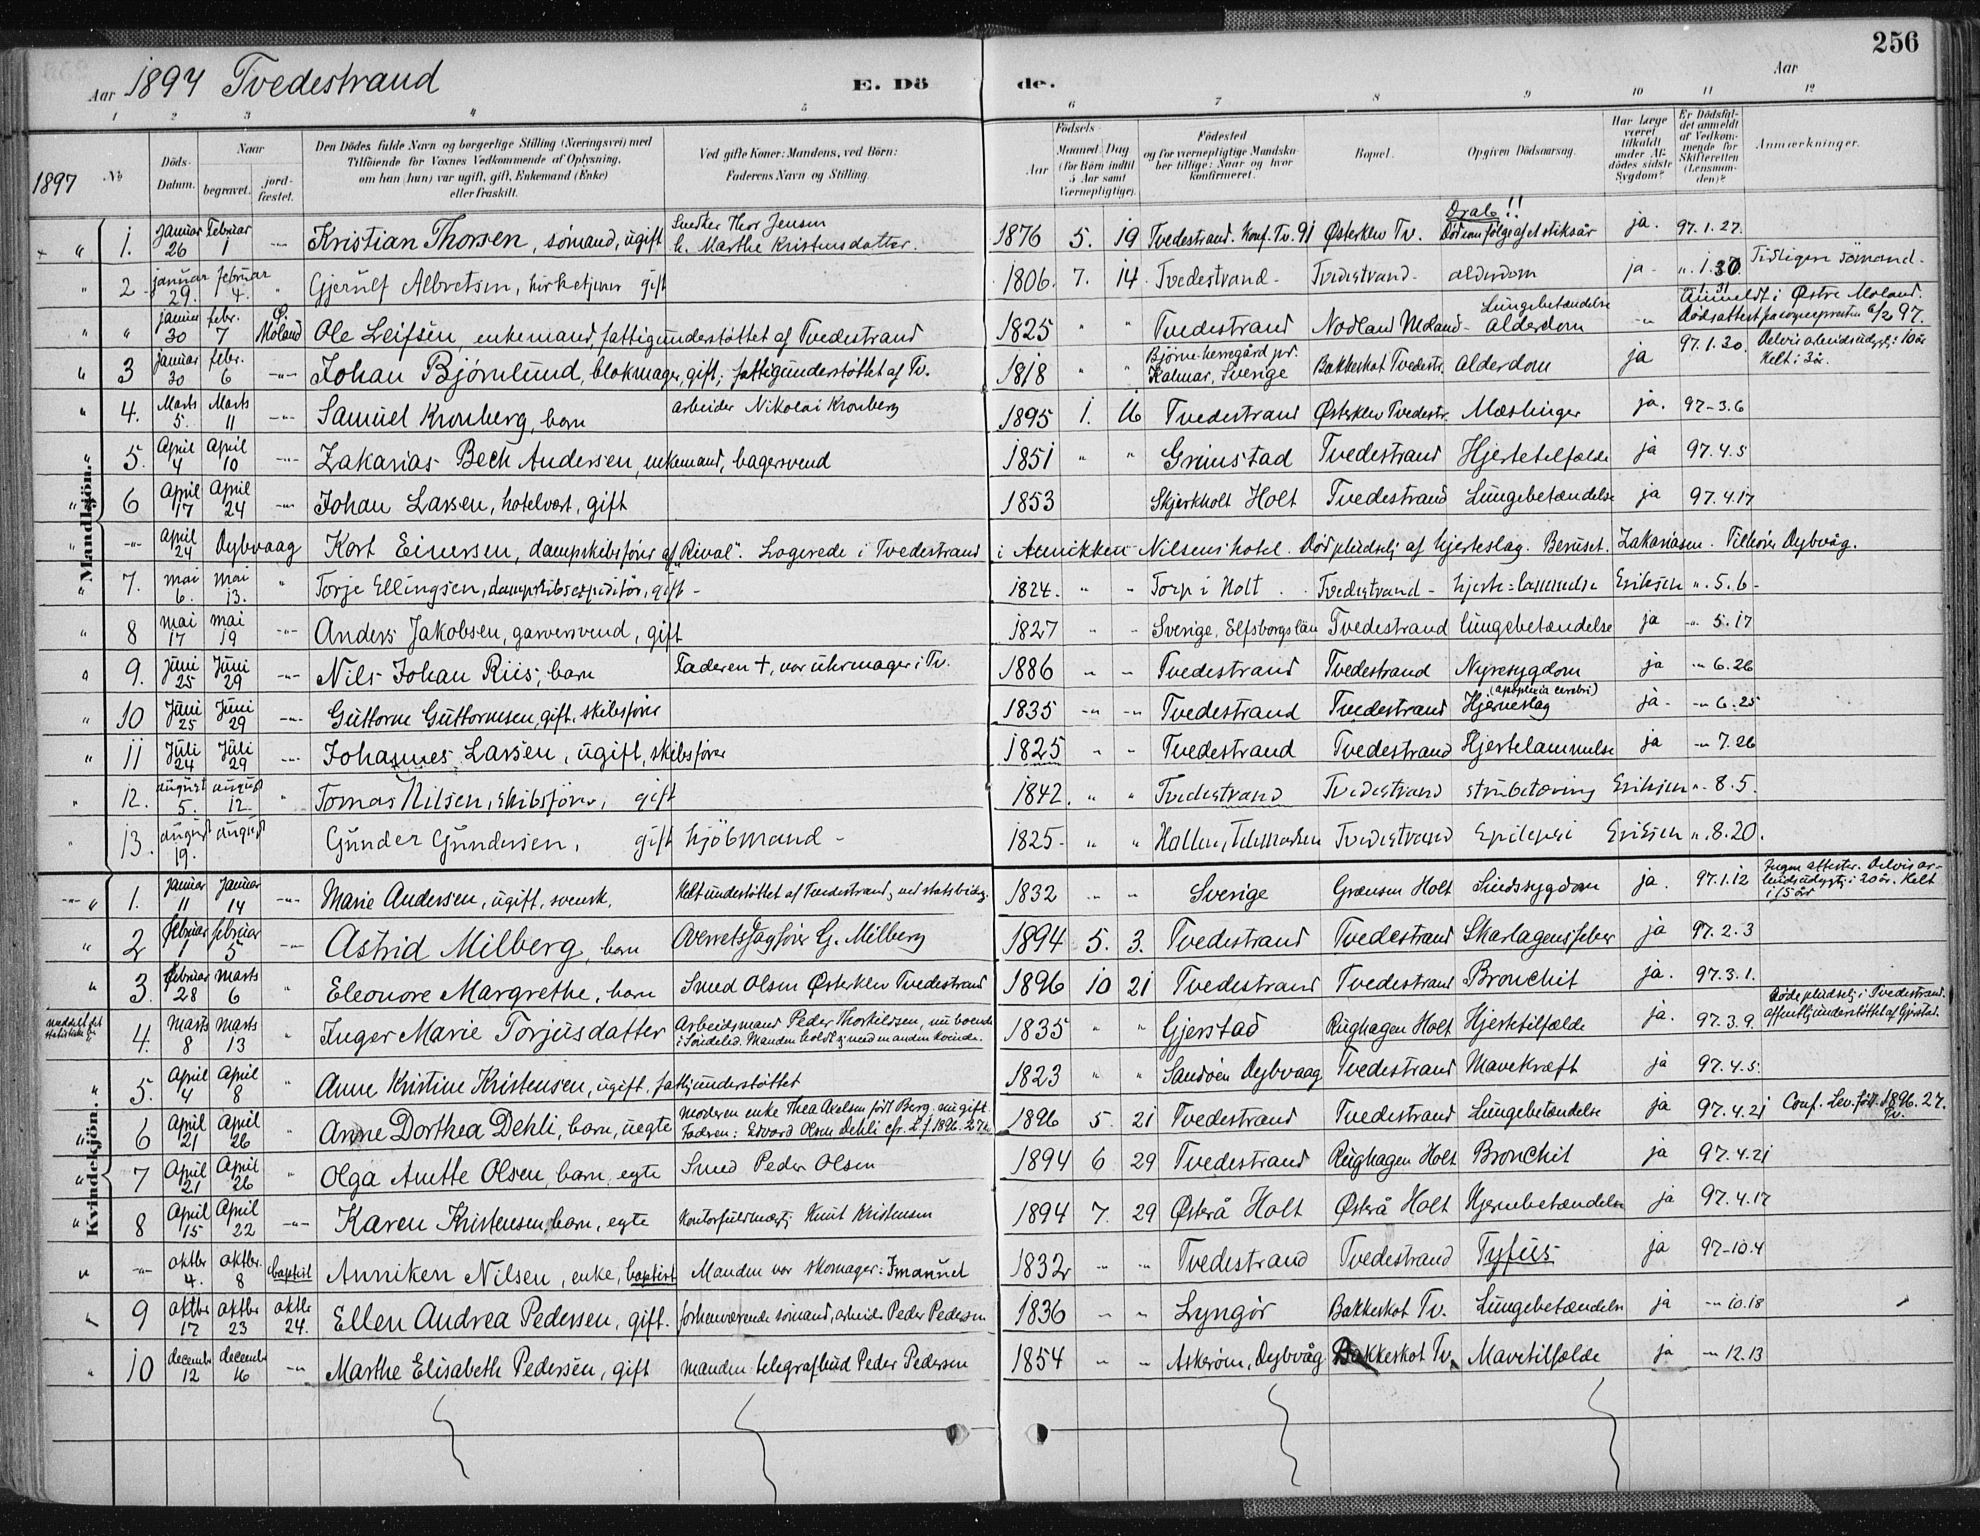 256
Aar 1897 Tvedestrand E. Dö de. Aar
1 2 3 4 5 6 7 8 9 10 11 12
1897 No Döds-Datum. Naar begravet. jord-fæstet. Den Dödes fulde Navn og borgerlige Stilling (Næringsvei) med Tilföiende for Voxnes Vedkommende af Oplysning, om han (hun) var ugift, gift, Enkemand (Enke) eller fraskilt. Ved gifte Koner: Mandens, ved Börn: Faderens Navn og Stilling. Födsels- Aar Maaned Dag (for Börn indtil 5 Aar samt Værnepligtige). Födested og for værnepligtige Mandskaber tillige: Naar og hvor konfirmeret. Bopæl. Opgiven Dödsaarsag. Har Læge været tilkaldt under Afdödes sidste Sygdom? Er Dödsfaldet anmeldt af Vedkommende for Skifteretten (Lensmanden)? Anmærkninger.
Mandkjön.
1. Januar 26 Februar 1 -"- Kristian Thorsen, sömand, ugift Snedker Thor Jensen h. Marthe Kristensdatter. 1876 5. 19 Tvedestrand. Konf. Tv. 91 Østerklev Tv. Drab!! Död som fölge af et stiksår ja. 97.1.27.
2 januar 29. februar 4. " Gjerulf Albretsen, kirketjener gift 1806. 7. 14 Tvedestrand- Tvedestrand- alderdom ja- ".1.30. Tidligere sömand-
" januar 30 febr. 7 Ø. Moland Ole Leifsen enkemand, fattigunderstöttet af Tvedestrand 1825 " " Tvedestrand Nodland Moland- Lungebetændelse alderdom -"- Anmeldt i Østre Moland. Dödsattest fra sognepresten 6/2 97.
3 Januar 30 febr. 6 -"- Johan Björnlund, blokmager, gift, fattigunderstöttet af Tv. 1818 " " Kalmar, Sverige Bakkeskot Tvedestr. alderdom ja 97.1.30. Delvis arbeidsudygtig i 10 år Helt i 3 år.
4. Marts 5. Marts 11 -"- Samuel Kronberg, barn arbeider Nikolai Kronberg 1895 1. 16 Tvedestrand Østerklev Tvedestr. Mæslinger ja. 97-3.6
5. April 4 April 10 -"- Zakarias Bech Andersen, enkemand, bagersvend 1851 " " Grimstad Tvedestrand Hjertetilfælde ja 97.4.5
6 April 17 April 24 -"- Johan Larsen, hotelvært, gift 1853 Skjerkholt Holt Tvedestrand Lungebetændelse ja 97.4.17
-"- April 24 Dybvaag Kort Einersen, dampskibsförer af "Rival". Logerede i Tvedestrand i Annikken Nilsens hotel. Död pludselig af hjerteslag. Beruset. Zakariasen. Tilhörer Dybvåg.
7. mai 6. mai 13. " Torje Ellingsen, dampskibsexpeditör, gift- 1824. " " Torp i Holt. Tvedestrand- hjerte=lammelse Eriksen ". 5.6-
8 mai 17 mai 19 -"- Anders Jakobsen, garversvend, gift 1827 " " Sverige, Elfsborgslän Tvedestrand lungebetændelse ja -"- 5.17
9. Juni 25 Juni 29 -"- Nils Johan Riis, barn Faderen +, var uhrmager i Tv. 1886 -"- -"- Tvedestrand Tvedestrand Nyresygdom ja -"- 6.26
10 Juni 25 Juni 29 -"- Guttorm Guttormsen, gift. skibsförer 1835 -"- -"- Tvedestrand Tvedestrand (apoplexia cerebri) Hjerneslag ja- -"- 6.25
11 Juli 24 Juli 29 -"- Johannes Larsen, ugift, skibsförer 1825 " " Tvedestrand Tvedestrand Hjertelammelse ja -"- 7.26
12. august 5. august 12. " Tomas Nilsen, skibsförer, gift 1842. " " Tvedestrand Tvedestrand strubetæring Eriksen ". 8.5.
13. august 19. august Gunder Gundersen, gift kjöbmand- 1825- " " Telemarken Tvedestrand Epilepsi Eriksen ". 8.20.
Kvindekjön.
1. Januar 11 Januar 14 -"- Marie Andersen, ugift, svensk. Helt understöttet af Tvedestrand, med statsbidrag. 1832 " " Sverige Grænsen Holt Sindssygdom ja. 97.1.12 Ingen attester. Delvis arbeidsudygtig i 20 år. Helt i 15 år
2 februar 1 februar 5 -"- Astrid Milberg, barn Overretssagförer G. Milberg 1894 5. 3. Tvedestrand Tvedestrand Skarlagensfeber ja 97.2.3
3. Februar 28 Marts 6 " Eleonore Margrethe, barn Smed Olsen Østerklev Tvedestrand 1896 10 21 Tvedestrand Tvedestrand Bronchit ja. 97.3.1.
4. Marts 8 Marts 13 " Inger Marie Torjusdatter Arbeidsmand Peder Thorkildsen, nu boende i Söndeled. Manden holdt sig med en anden kvinde. 1835 " " Gjerstad Rughagen Holt Hjertetilfælde ja. 97.3.9. Döde pludselig i Tvedestrand. offentlig understöttet af Gjerstad.
5. April 4 April 8 " Anne Kristine Kristensen, ugift, fattigunderstöttet 1823 " " Sandöen Dybvaag Tvedestrand Mavekræft ja 97.4.5.
6 April 21 April 26 " Anne Dorthea Dehli, barn, uegte Moderen enke Thea Axelsen födt Berg. nu gift. Fadren: Edvard Olsen Dehli cfr. L.f. 1896. 27 1896 5. 21 Tvedestrand Tvedestrand Lungebetændelse ja 97.4.21 Conf. Lev. föd. 1896. 27. Tv.
7 April 21 April 26 " Olga Anette Olsen, barn, egte Smed Peder Olsen 1894 6 29 Tvedestrand Rughagen Holt Bronchit ja 97.4.21
8 April 15 April 22 -"- Karen Kristensen, barn, egte Kontorfuldmægtig Knut Kristensen 1894 7. 29 Østerå Holt Østerå Holt Hjernebetændelse ja 97.4.17
-"- oktbr 4. oktbr. 8 baptist Anniken Nilsen, enke, baptist Manden var skomager: Imanuel 1832 " " Tvedestrand Tvedestrand Tyfus ja 97-10.4
9 oktbr 17 oktbr 23 oktbr 24. Ellen Andrea Pedersen, gift. forhenværende sömand, arbeider Peder Pedersen 1836 " " Lyngör Bakkeskot Tv. Lungebetændelse ja -"- 10.18
10 december 12 december 16 -"- Marthe Elisabeth Pedersen, gift manden telegrafbud Peder Pedersen 1854 " " Askeröen, Dybvåg Bakkeskot Tv. Mavetilfælde ja -"- 12.13